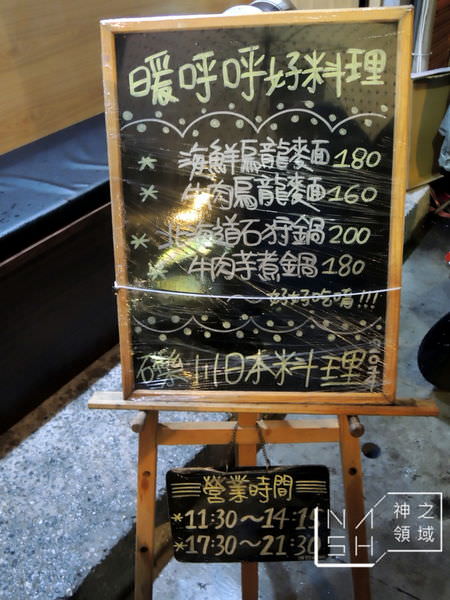 暖呼呼好料理
* 海鮮烏龍麵 180
* 牛肉烏龍麵 160
* 北海道石狩鍋 200
* 牛肉芋煮鍋 180
~好好吃唷!!!
礫川日本料理
營業時間
*11:30~14:
*17:30~21:30
神之領域